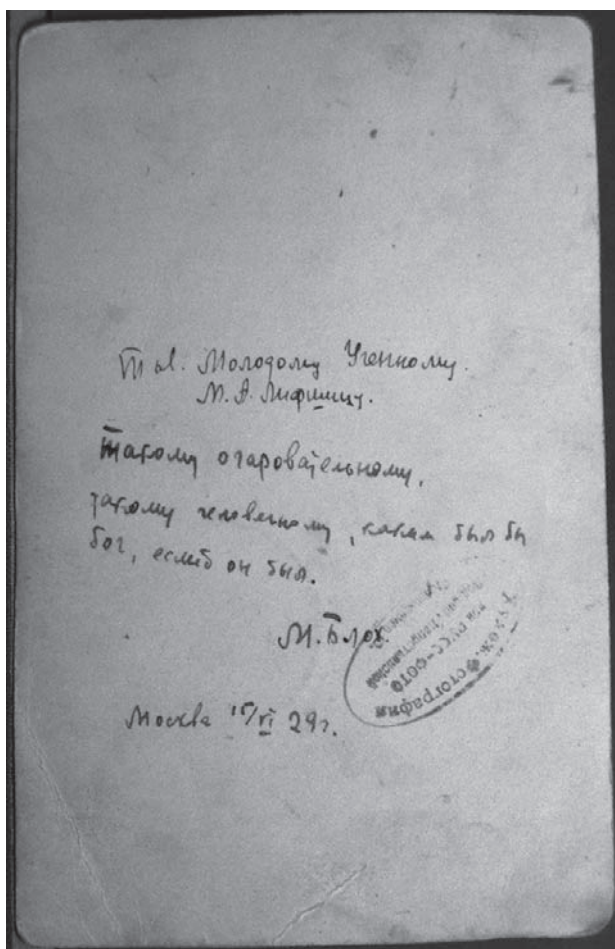 Тов. Молодому Ученному.
М. А. Лифшицу.
Такому очаровательному,
такому человечному, каким был бы
бог, еслиб он был.
М. Блох.
Москва 15/VI 29г.
Худож. Фотография
при ПРЕСС-ФОТО